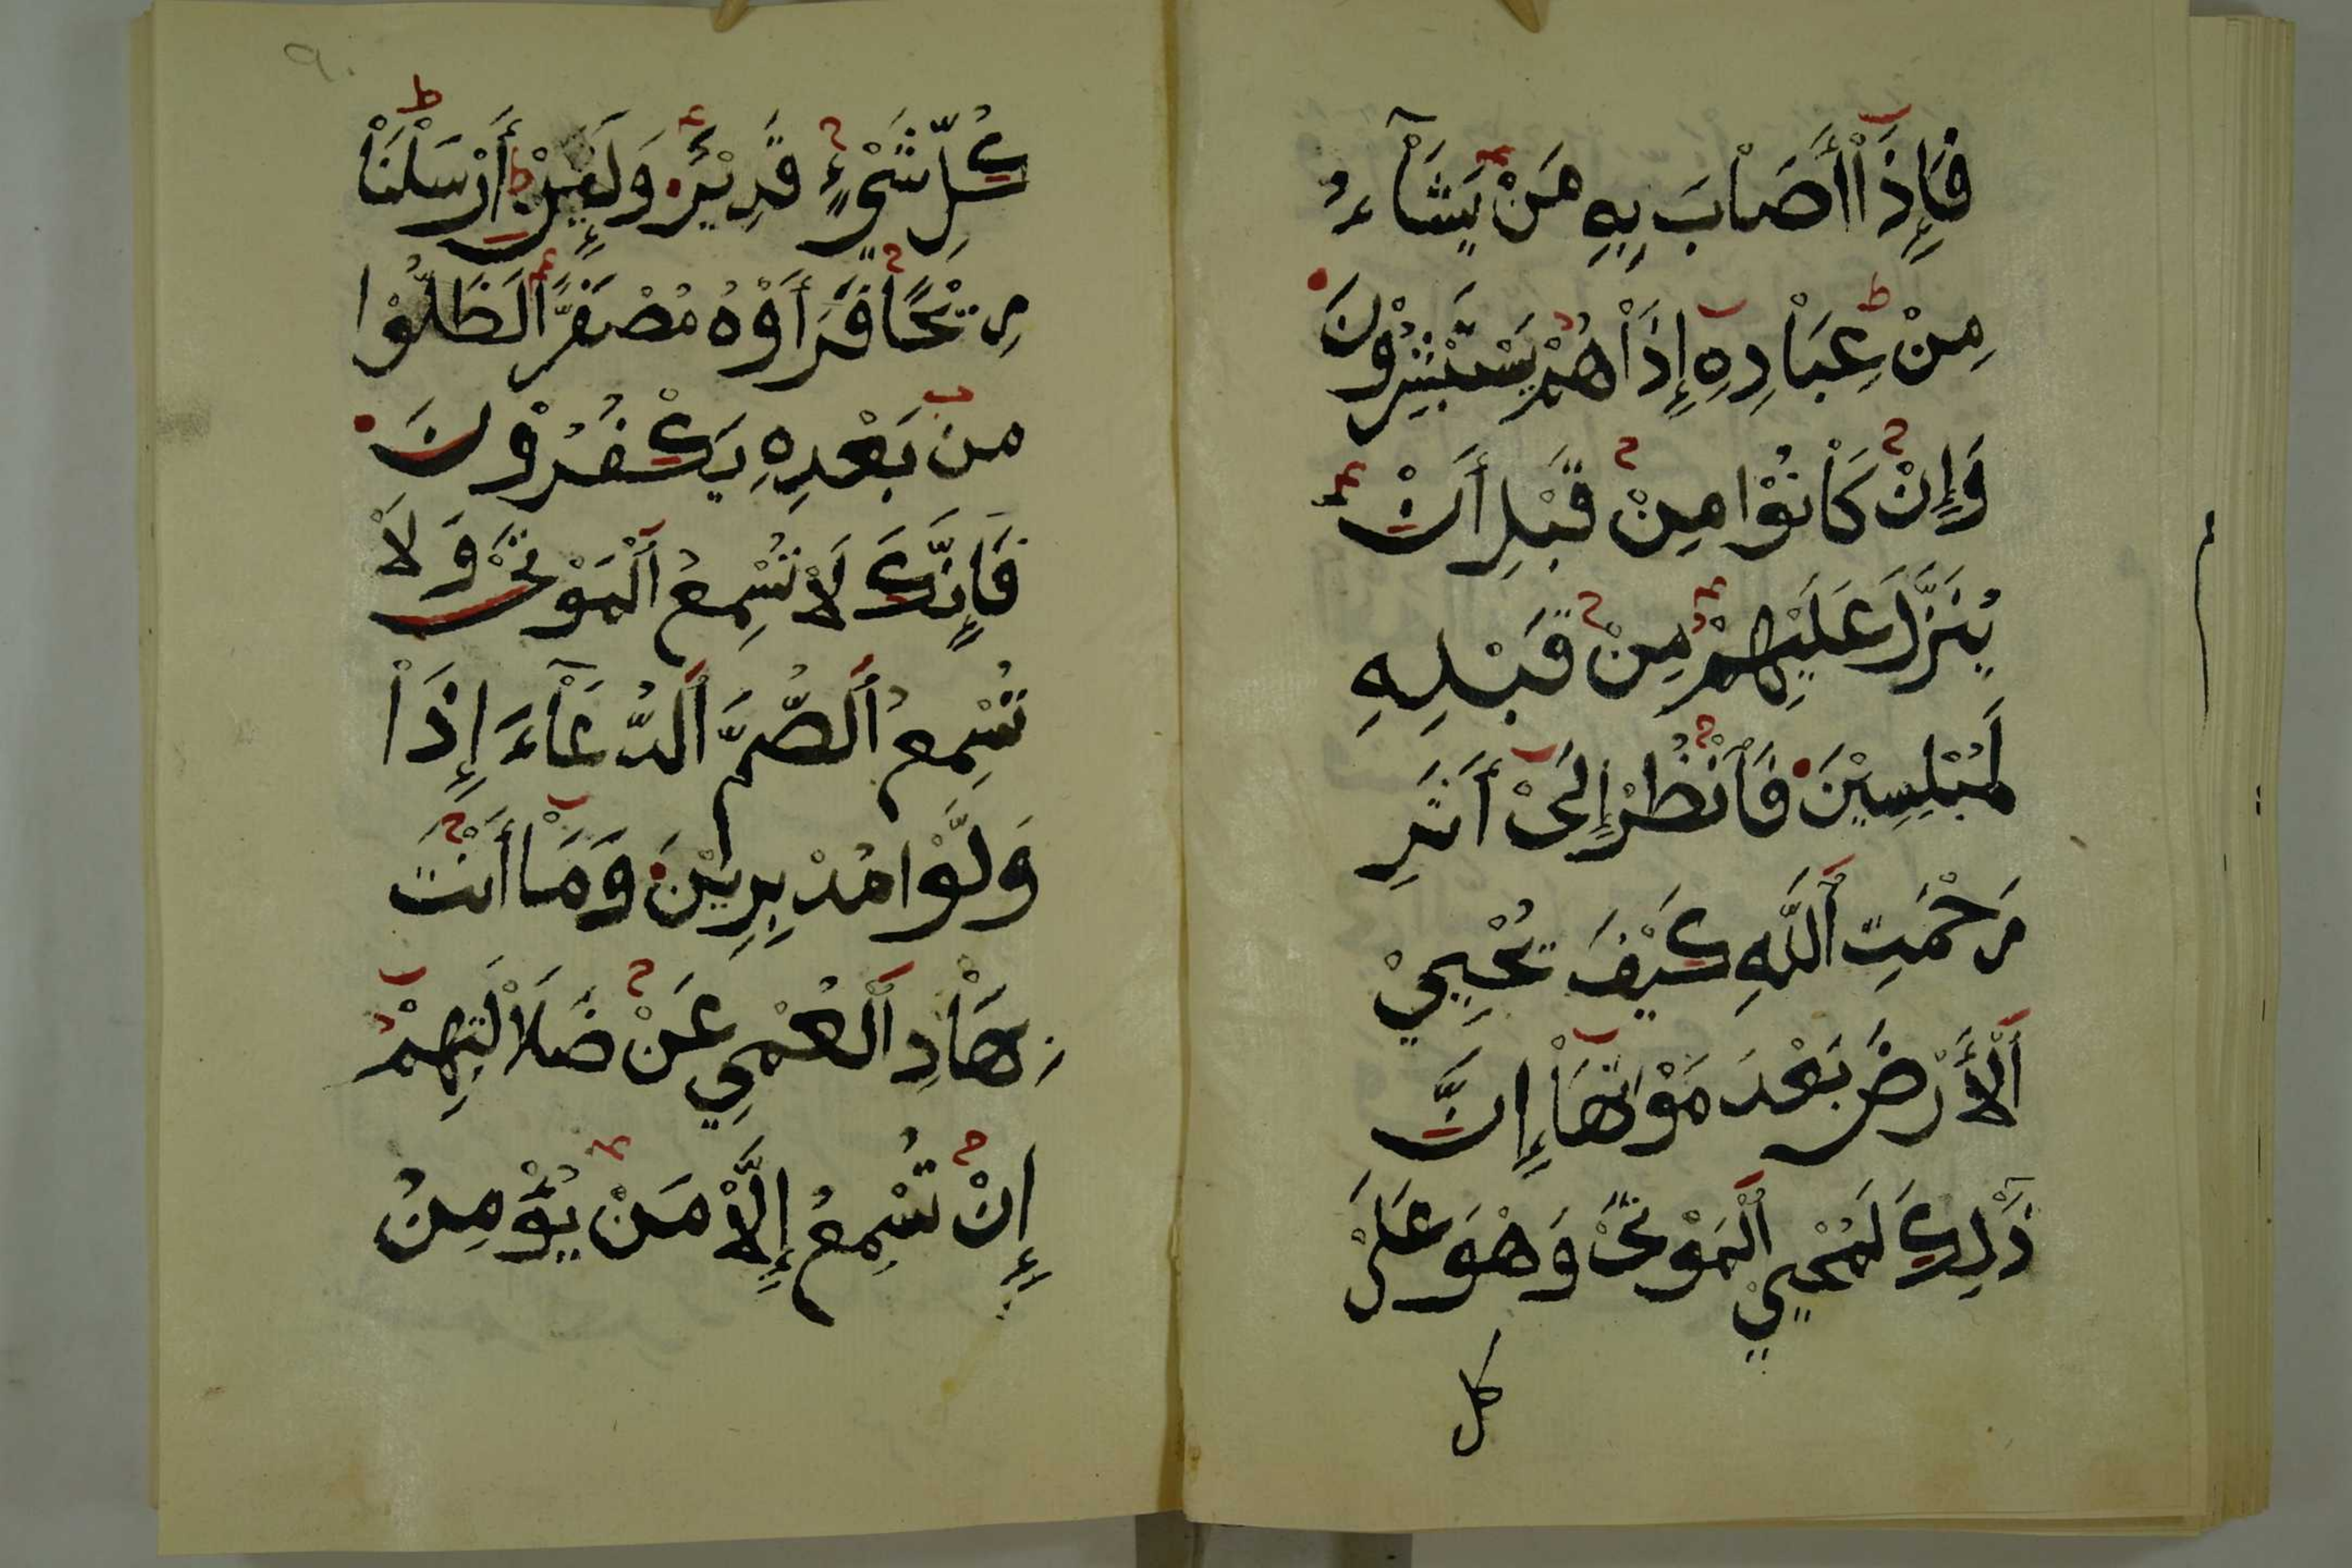 فَإِذَآ أَصَابَ بِهِ مَنْ يَشَآءُ
مِنْ عِبَادِهِ إِذَا هُمْ يَسْتَبْشِرُوْنَ
وَإِنْ كَانُوْا مِنْ قَبْلِ أَنْ
يُنَزَّلَ عَلَيْهِمْ مِنْ قَبْلِهِ
لَمُبْلِسِيْنَ فَٱنْظُرْ إِلَىْ أَثَرِ
رَحْمَتِ ٱللَّهِ كَيْفَ يُحْيِيْ
ٱلْأَرْضَ بَعْدَ مَوْتِهَا إِنَّ
ذَٰلِكَ لَمُحْيِيْ ٱلْمَوْتَىْ وَهْوَ عَلَىْ
كل
٩٠
كُلِّ شَيْءٍ قَدِيْرٌ وَلَئِنْ أَرْسَلْنَا
رِيْحًا فَرَأَوْهُ مُصْفَرًّا لَظَلُّوْا
مِنْ بَعْدِهِ يَكْفُرُوْنَ
فَإِنَّكَ لَا تُسْمِعُ ٱلْمَوْتَىْ وَلَا
تُسْمِعُ ٱلصُّمَّ ٱلدُّعَآءَ إِذَا
وَلَّوْا مُدْبِرِيْنَ وَمَا أَنْتَ
بِهَادِ ٱلْعُمْيِ عَنْ ضَلَالَتِهِمْ
إِنْ تُسْمِعُ إِلَّا مَنْ يُؤْمِنُ